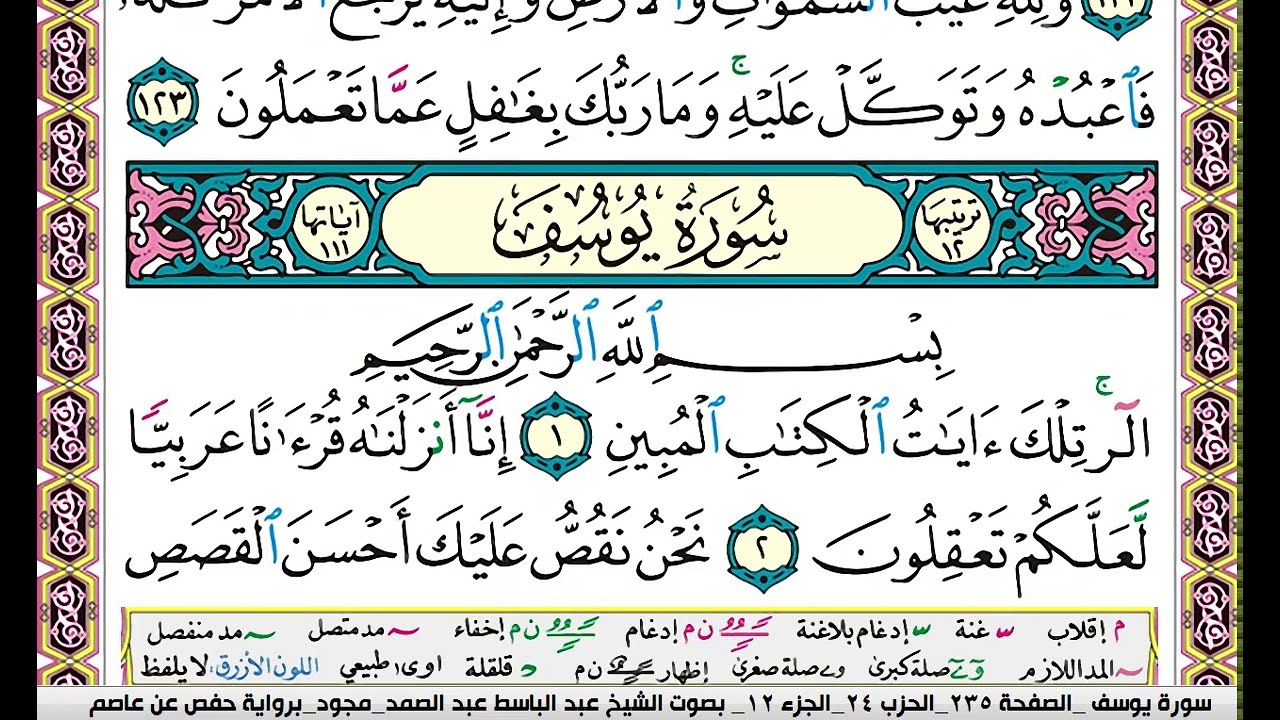 وَلِلَّهِ غَيْبُ ٱلسَّمَٰوَٰتِ وَٱلْأَرْضِ وَإِلَيْهِ يُرْجَعُ ٱلْأَمْرُ كُلُّهُۥ
فَٱعْبُدْهُ وَتَوَكَّلْ عَلَيْهِ ۚ وَمَا رَبُّكَ بِغَٰفِلٍ عَمَّا تَعْمَلُونَ ١٢٣
ترتيبها ١٢ سُورَةُ يُوسُفَ آياتها ١١١
بِسْمِ ٱللَّهِ ٱلرَّحْمَٰنِ ٱلرَّحِيمِ
الٓر ۚ تِلْكَ ءَايَٰتُ ٱلْكِتَٰبِ ٱلْمُبِينِ ١ إِنَّآ أَنزَلْنَٰهُ قُرْءَٰنًا عَرَبِيًّا
لَّعَلَّكُمْ تَعْقِلُونَ ٢ نَحْنُ نَقُصُّ عَلَيْكَ أَحْسَنَ ٱلْقَصَصِ
م إقلاب غنة إدغام بلاغنة ن م إدغام ن م إخفاء مد متصل مد منفصل
المد اللازم صلة كبرى صلة صغرى إظهار ن م د قلقلة اوى طبيعي اللون الأزرق: لا يلفظ
سورة يوسف _الصفحة ٢٣٥_الحزب ٢٤_الجزء ١٢_ بصوت الشيخ عبد الباسط عبد الصمد_مجود_برواية حفص عن عاصم